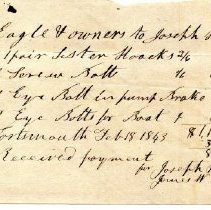 Eagle & owners to Joseph
1 pair Sister Hooks 2/6
1 Screw Bolt 1/6
1 Eye Bolt in pump Brake
2 Eye Bolts for Boat
Portsmouth Feb 18 1843 $1,
Received payment
for Joseph
James W